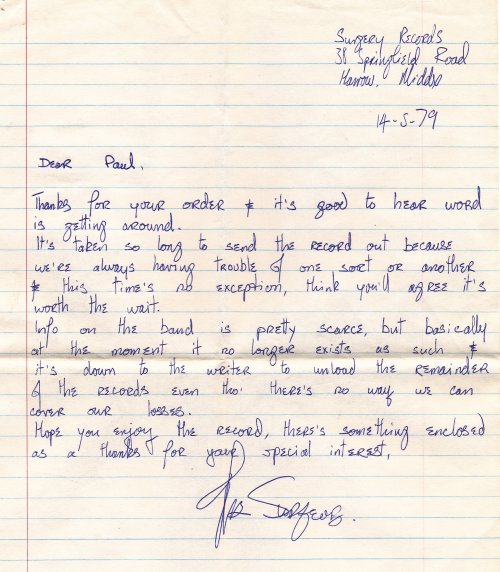 Surgery Records
38 Springfield Road
Harrow, Middx
14-5-79
Dear Paul,
Thanks for your order & it's good to hear word
is getting around.
It's taken so long to send the record out because
we're always having trouble of one sort or another
& this time's no exception, think you'll agree it's
worth the wait.
Info on the band is pretty scarce, but basically
at the moment it no longer exists as such &
it's down to the writer to unload the remainder
of the records even tho' there's no way we can
cover our losses.
Hope you enjoy the record, there's something enclosed
as a thanks for your special interest,